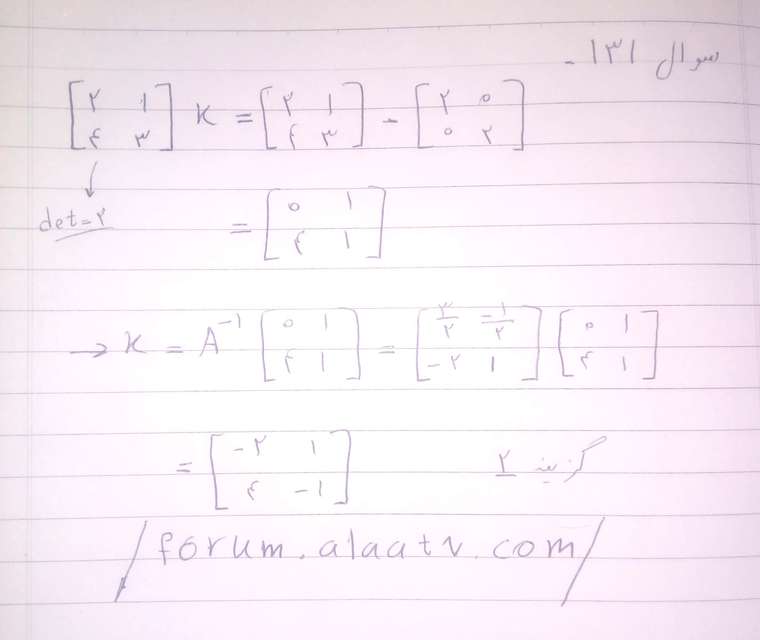 سوال ۱۳۱ -
[۲ ۱ ; ۴ ۳] K = [۲ ۱ ; ۴ ۳] - [۲ ۰ ; ۰ ۲]
↓
det=۲
= [۰ ۱ ; ۴ ۱]
→ K = A⁻¹ [۰ ۱ ; ۴ ۱] = [۳/۲ -۱/۲ ; -۲ ۱] [۰ ۱ ; ۴ ۱]
= [-۲ ۱ ; ۴ -۱] گزینه ۲
/forum.alaatv.com/